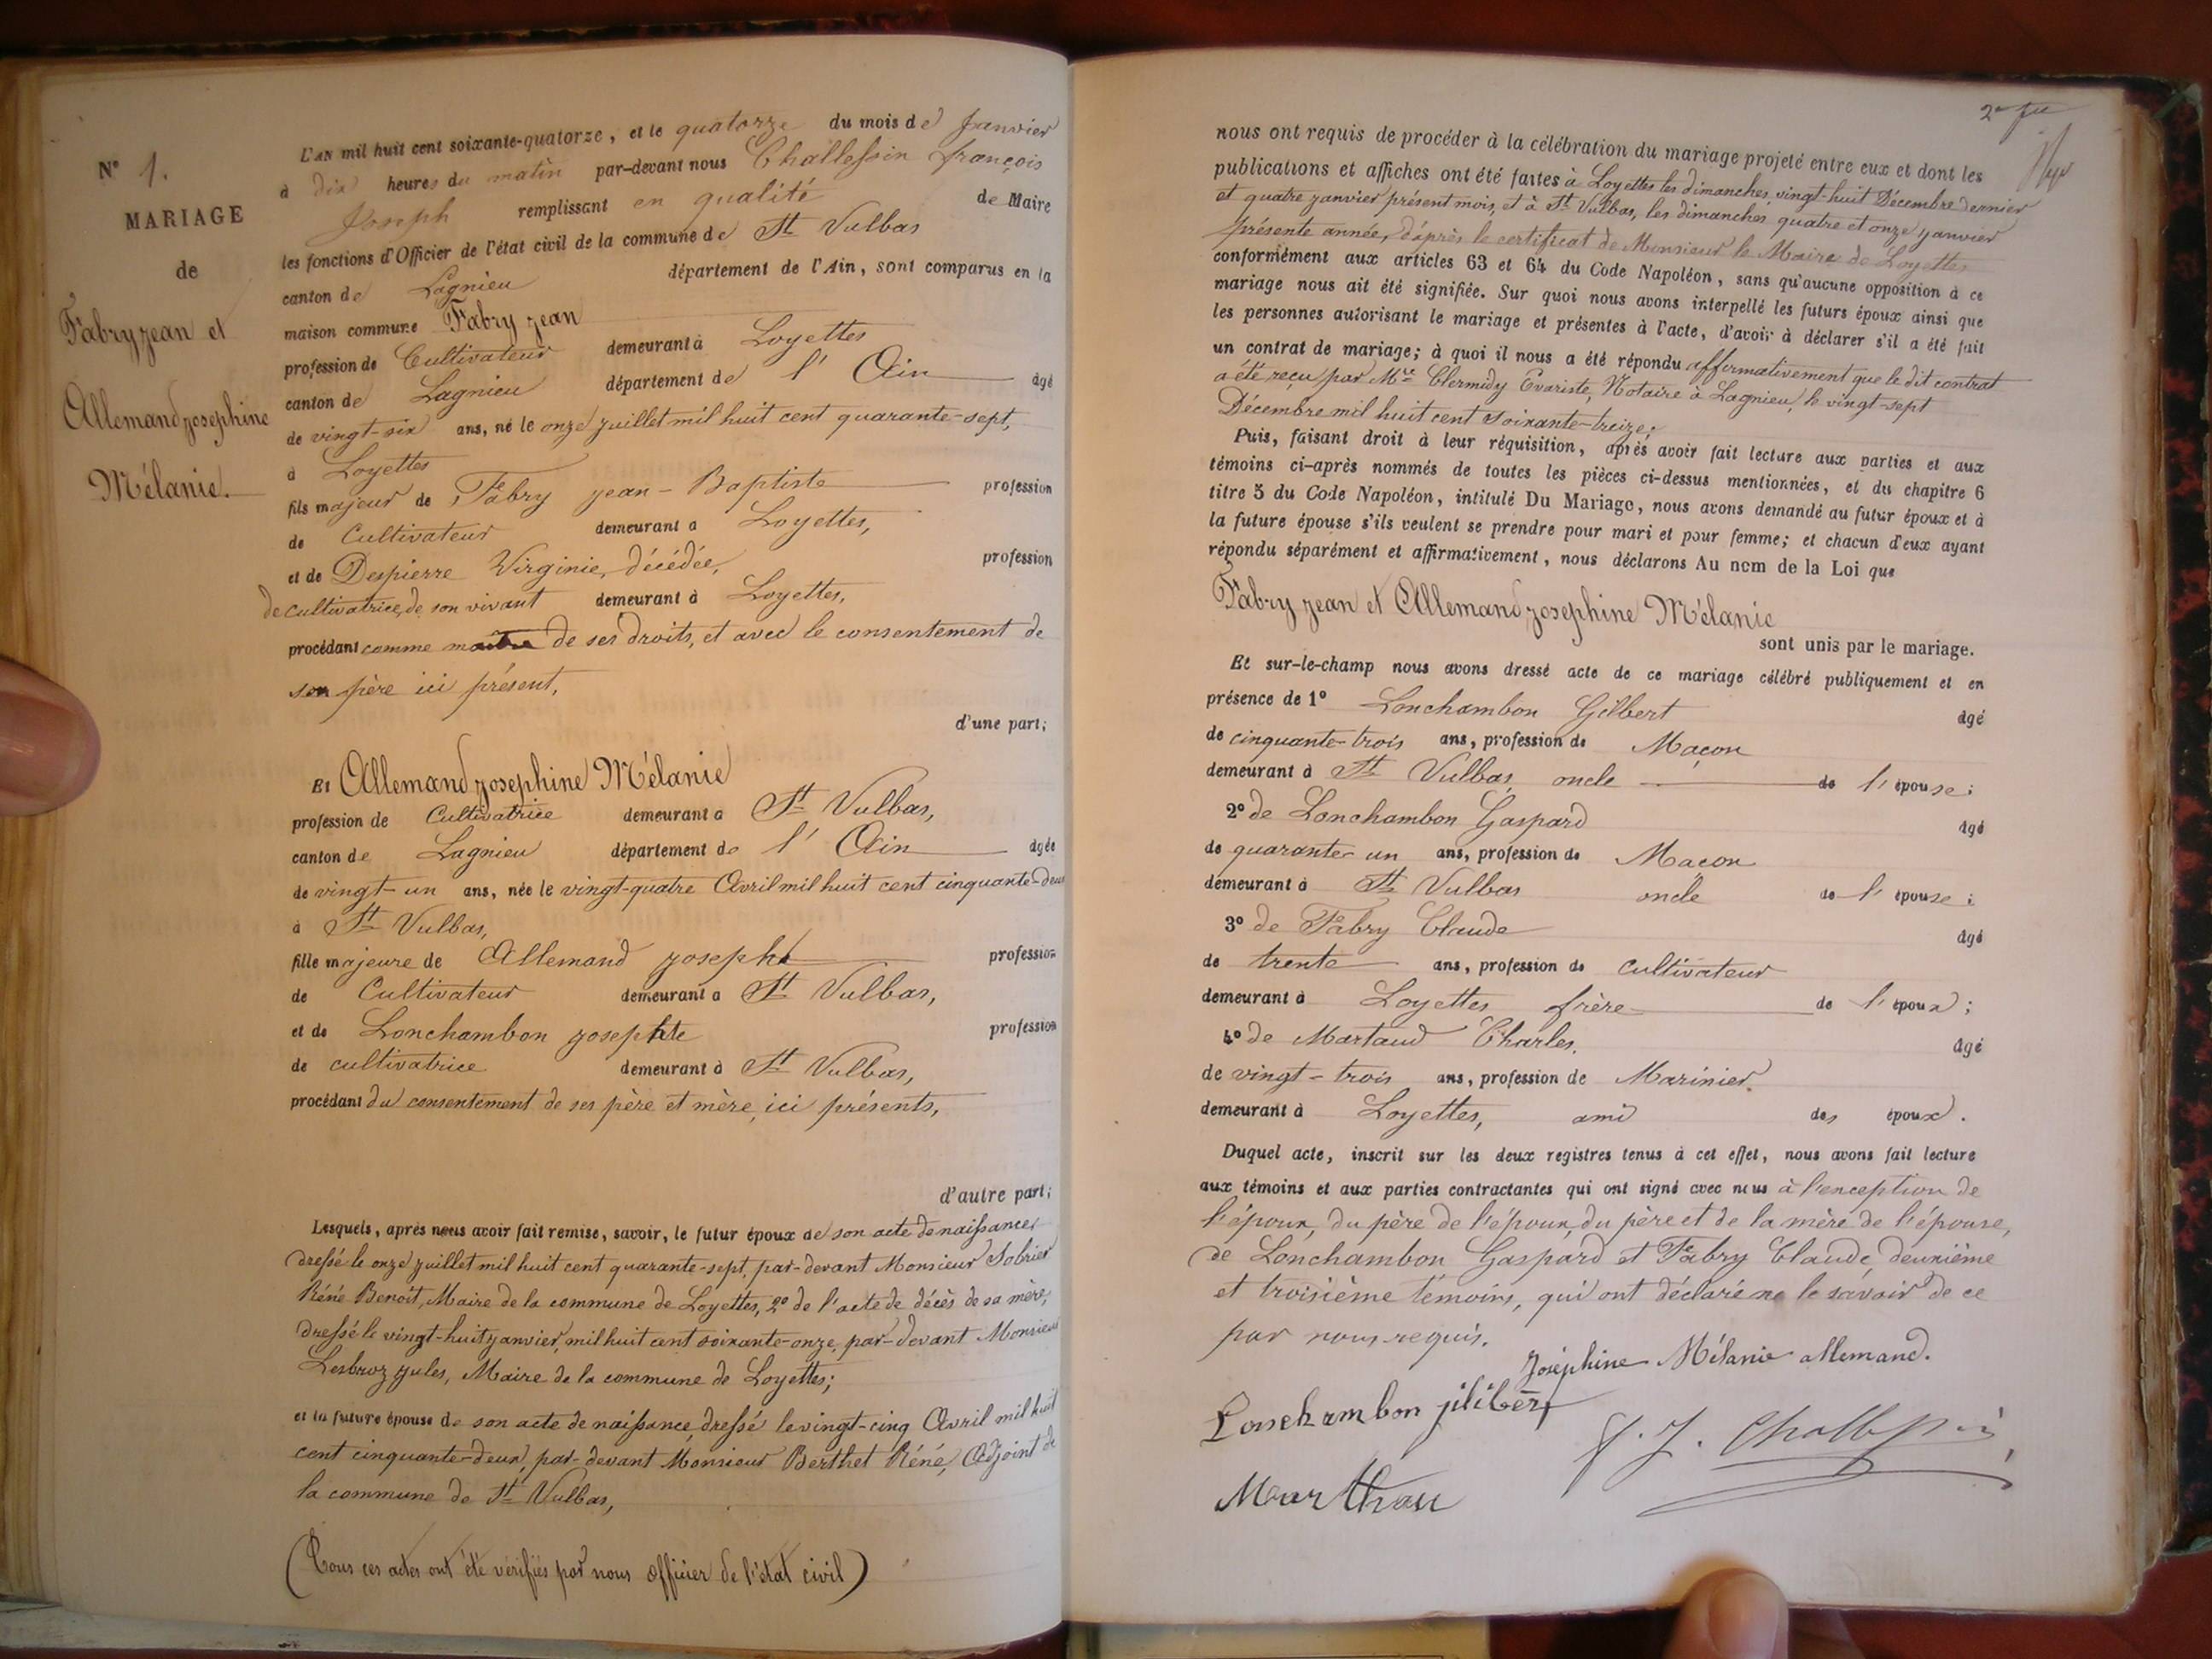 N° 1.
MARIAGE
de
Fabry jean et
Allemand josephine
Mélanie.
L'AN mil huit cent soixante-quatorze, et le quatorze du mois de Janvier
à dix heures du matin par-devant nous Challessin françois
Joseph remplissant en qualité de Maire
les fonctions d'Officier de l'état civil de la commune de St Vulbas
canton de Lagnieu département de l'Ain, sont comparus en la
maison commune Fabry jean
profession de Cultivateur demeurant à Loyettes
canton de Lagnieu département de l'Ain âgé
de vingt-six ans, né le onze juillet mil huit cent quarante-sept,
à Loyettes
fils majeur de Fabry jean-Baptiste profession
de Cultivateur demeurant à Loyettes,
et de Despierre Virginie, décédée, profession
de cultivatrice, de son vivant demeurant à Loyettes,
procédant comme maître de ses droits, et avec le consentement de
son père ici présent,
d'une part;
Et Allemand josephine Mélanie
profession de Cultivatrice demeurant à St Vulbas,
canton de Lagnieu département de l'Ain âgée
de vingt-un ans, née le vingt-quatre Avril mil huit cent cinquante-deux
à St Vulbas,
fille majeure de Allemand joseph profession
de Cultivateur demeurant à St Vulbas,
et de Lonchambon josephte profession
de cultivatrice demeurant à St Vulbas,
procédant du consentement de ses père et mère, ici présents,
d'autre part;
Lesquels, après nous avoir fait remise, savoir, le futur époux de son acte de naissance,
dressé le onze juillet mil huit cent quarante-sept, par-devant Monsieur Sobrier
Réné Benoit, Maire de la commune de Loyettes, 2° de l'acte de décès de sa mère,
dressé le vingt-huit janvier, mil huit cent soixante-onze, par-devant Monsieur
Lesbroz jules, Maire de la commune de Loyettes;
et la future épouse de son acte de naissance, dressé le vingt-cinq Avril mil huit
cent cinquante-deux, par-devant Monsieur Berthet Réné, Adjoint de
la commune de St Vulbas,
(Tous ces actes ont été vérifiés par nous officier de l'état civil)
nous ont requis de procéder à la célébration du mariage projeté entre eux et dont les
publications et affiches ont été faites à Loyettes les dimanches, vingt-huit Décembre dernier
et quatre janvier présent mois, et à St Vulbas, les dimanches quatre et onze janvier
présente année, d'après le certificat de Monsieur le Maire de Loyettes
conformément aux articles 63 et 64 du Code Napoléon, sans qu'aucune opposition à ce
mariage nous ait été signifiée. Sur quoi nous avons interpellé les futurs époux ainsi que
les personnes autorisant le mariage et présentes à l'acte, d'avoir à déclarer s'il a été fait
un contrat de mariage; à quoi il nous a été répondu affirmativement que le dit contrat
a été reçu par Me Clermidy Evariste, Notaire à Lagnieu, le vingt-sept
Décembre mil huit cent soixante-treize;
Puis, faisant droit à leur réquisition, après avoir fait lecture aux parties et aux
témoins ci-après nommés de toutes les pièces ci-dessus mentionnées, et du chapitre 6
titre 5 du Code Napoléon, intitulé Du Mariage, nous avons demandé au futur époux et à
la future épouse s'ils veulent se prendre pour mari et pour femme; et chacun d'eux ayant
répondu séparément et affirmativement, nous déclarons Au nom de la Loi que
Fabry jean et Allemand josephine Mélanie
sont unis par le mariage.
Et sur-le-champ nous avons dressé acte de ce mariage célébré publiquement et en
présence de 1° Lonchambon Gilbert âgé
de cinquante-trois ans, profession de Maçon
demeurant à St Vulbas, oncle de l'épouse;
2° de Lonchambon Gaspard âgé
de quarante-un ans, profession de Maçon
demeurant à St Vulbas oncle de l'épouse;
3° de Fabry Claude âgé
de trente ans, profession de cultivateur
demeurant à Loyettes frère de l'époux;
4° de Martaud Charles. âgé
de vingt-trois ans, profession de Marinier.
demeurant à Loyettes, ami des époux.
Duquel acte, inscrit sur les deux registres tenus à cet effet, nous avons fait lecture
aux témoins et aux parties contractantes qui ont signé avec nous à l'exception de
l'époux, du père de l'époux, du père et de la mère de l'épouse,
de Lonchambon Gaspard et Fabry Claude, deuxième
et troisième témoins, qui ont déclaré ne le savoir de ce
par nous requis.
Joséphine Mélanie allemand.
Lonchambon jilibert
f. J. Challessin
Marthau